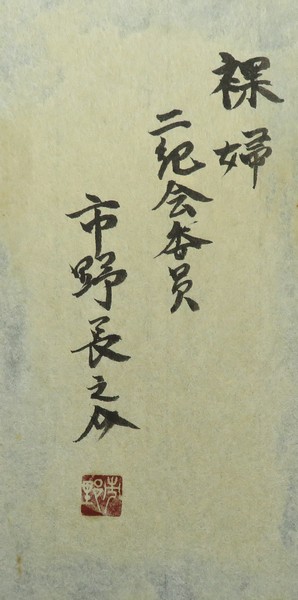 裸婦
二紀会委員
市野長之介
市野